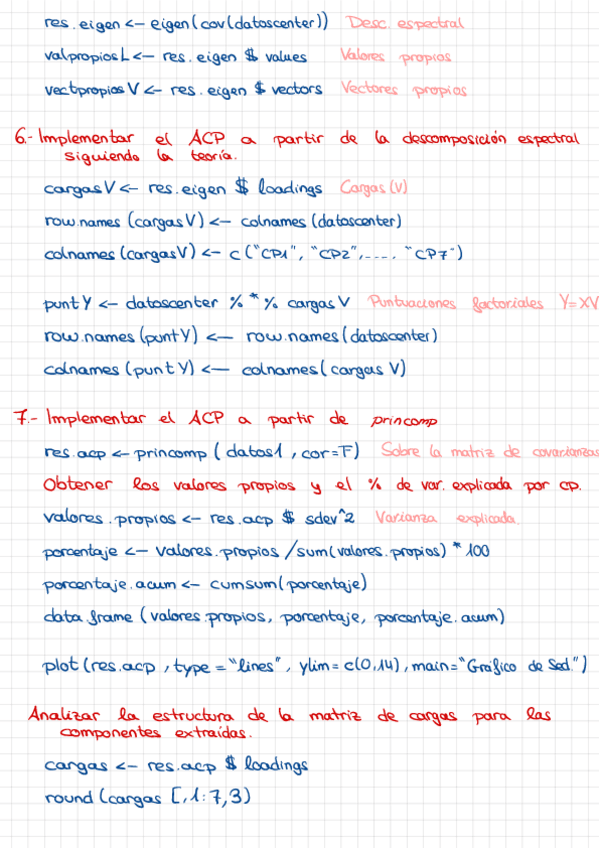 res.eigen <- eigen(cov(datoscenter)) Desc. espectral
valpropiosL <- res.eigen $ values Valores propios
vectpropiosV <- res.eigen $ vectors Vectores propios
6.- Implementar el ACP a partir de la descomposición espectral
siguiendo la teoría.
cargasV <- res.eigen $ loadings Cargas (V)
row.names (cargasV) <- colnames (datoscenter)
colnames (cargasV) <- c ("CP1", "CP2",.... "CP7")
puntY <- datoscenter % * % cargasV Puntuaciones factoriales Y=XV
row.names (puntY) <- row.names (datoscenter)
colnames (puntY) <- colnames (cargas V)
7.- Implementar el ACP a partir de princomp
res.acp <- princomp (datos1, cor=F) Sobre la matriz de covarianzas
Obtener los valores propios y el % de var. explicada por cp.
valores.propios <- res.acp $ sdev^2 Varianza explicada.
porcentaje <- valores.propios /sum(valores.propios) * 100
porcentaje.acum <- cumsum(porcentaje)
data.frame (valores.propios, porcentaje, porcentaje.acum)
plot (res.acp, type = "lines", ylim = c(0,14), main="Gráfico de Sed.")
Analizar la estructura de la matriz de cargas para las
componentes extraídas.
cargas <- res.acp $ loadings
round (cargas [,1:7,3)